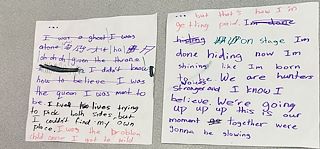 ...
I was a ghost I was
alone
given the throne
I didn't know
how to believe I was
the queen I was meant to
be I lives trying
to Pick both sides, but
I couldn't find my own
place. I was the problem
child cause I got to wild
... but that's how I'm
getting paid. I'm done
hiding on stage Im
done hiding now Im
shining like Im born
to be. We are hunters
stronger and I know I
believe. We're going
up up up this is our
moment together were
gonna be glowing